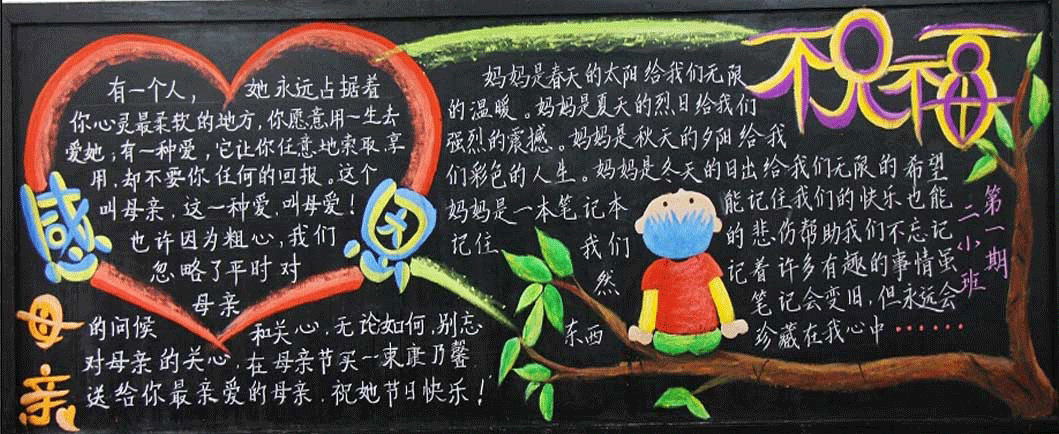 感恩
母亲
有一个人, 她永远占据着
你心灵最柔软的地方,你愿意用一生去
爱她;有一种爱,它让你任意地索取,享
用,却不要你任何的回报。这个
叫母亲,这一种爱,叫母爱!
也许因为粗心,我们
忽略了平时对
母亲
的问候 和关心,无论如何,别忘
对母亲的关心,在母亲节买一束康乃馨
送给你最亲爱的母亲,祝她节日快乐!
祝福
妈妈是春天的太阳给我们无限
的温暖。妈妈是夏天的烈日给我们
强烈的震撼。妈妈是秋天的夕阳给我
们彩色的人生。妈妈是冬天的日出给我们无限的希望
妈妈是一本笔记本 能记住我们的快乐也能
记住 我们 的悲伤帮助我们不忘记
然 记着许多有趣的事情虽
笔记会变旧,但永远会
东西 珍藏在我心中······
第一期
二小班